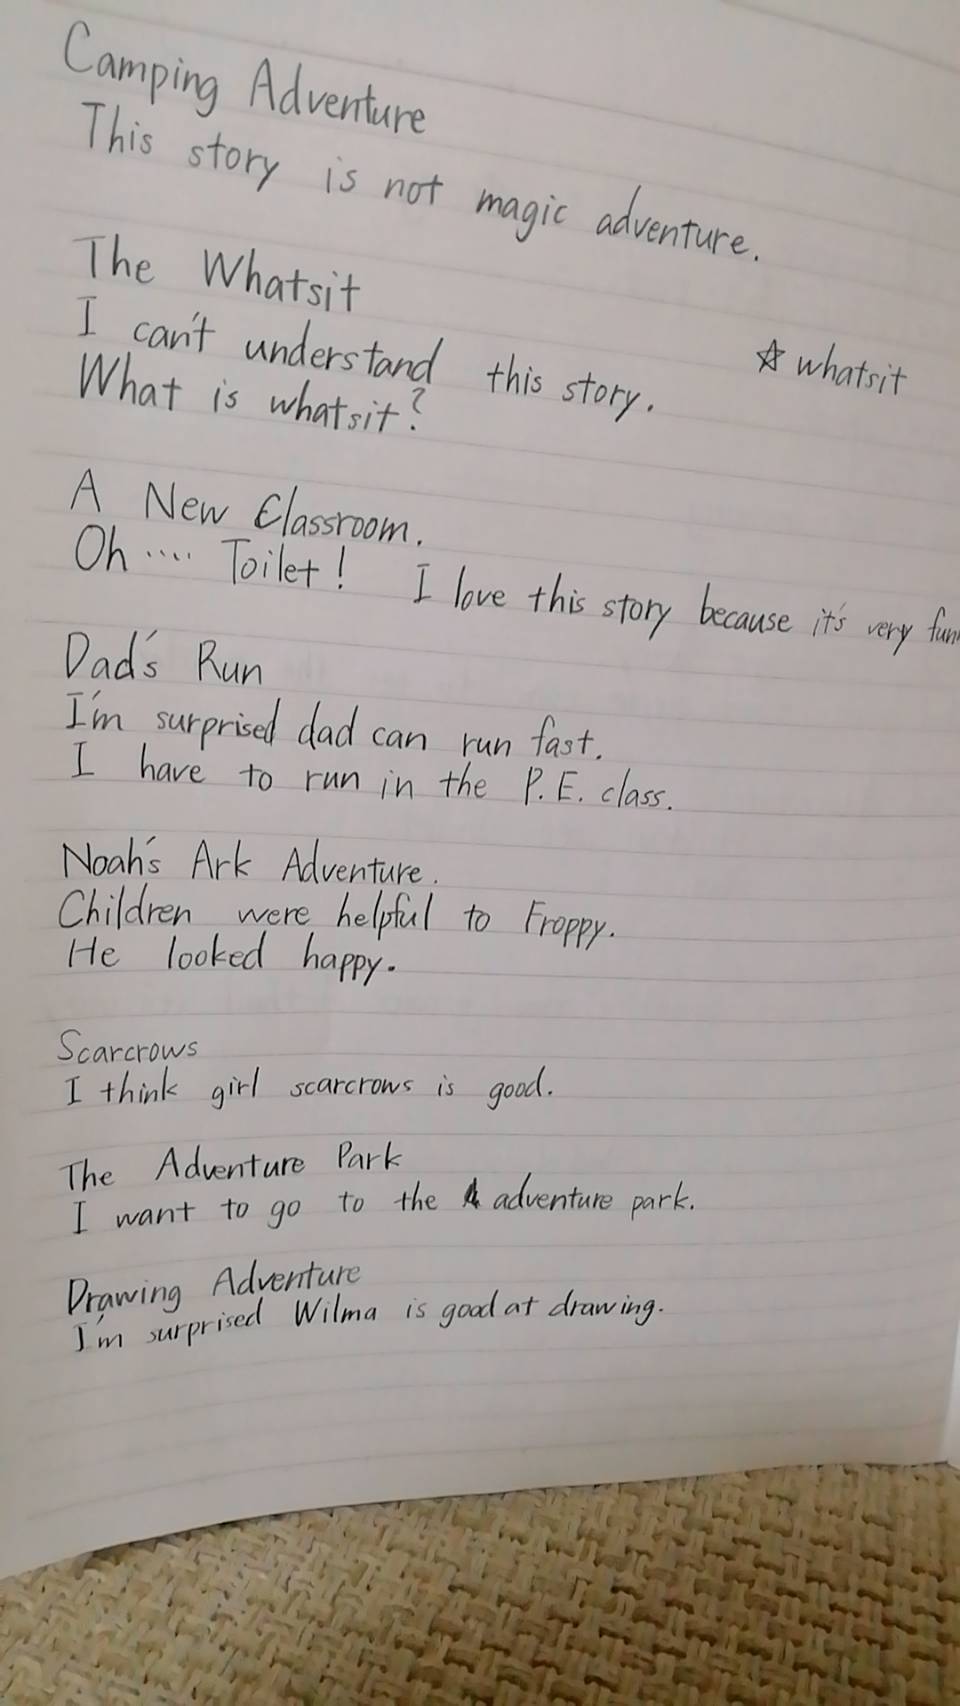 Camping Adventure
This story is not magic adventure.
The Whatsit
I can't understand this story.
☆ whatsit
What is whatsit?
A New Classroom.
Oh .... Toilet! I love this story because it's very
Dad's Run
I'm surprised dad can run fast.
I have to run in the P.E. class.
Noah's Ark Adventure.
Children were helpful to Froppy.
He looked happy.
Scarcrows
I think girl scarcrows is good.
The Adventure Park
I want to go to the adventure park.
Drawing Adventure
I'm surprised Wilma is good at drawing.